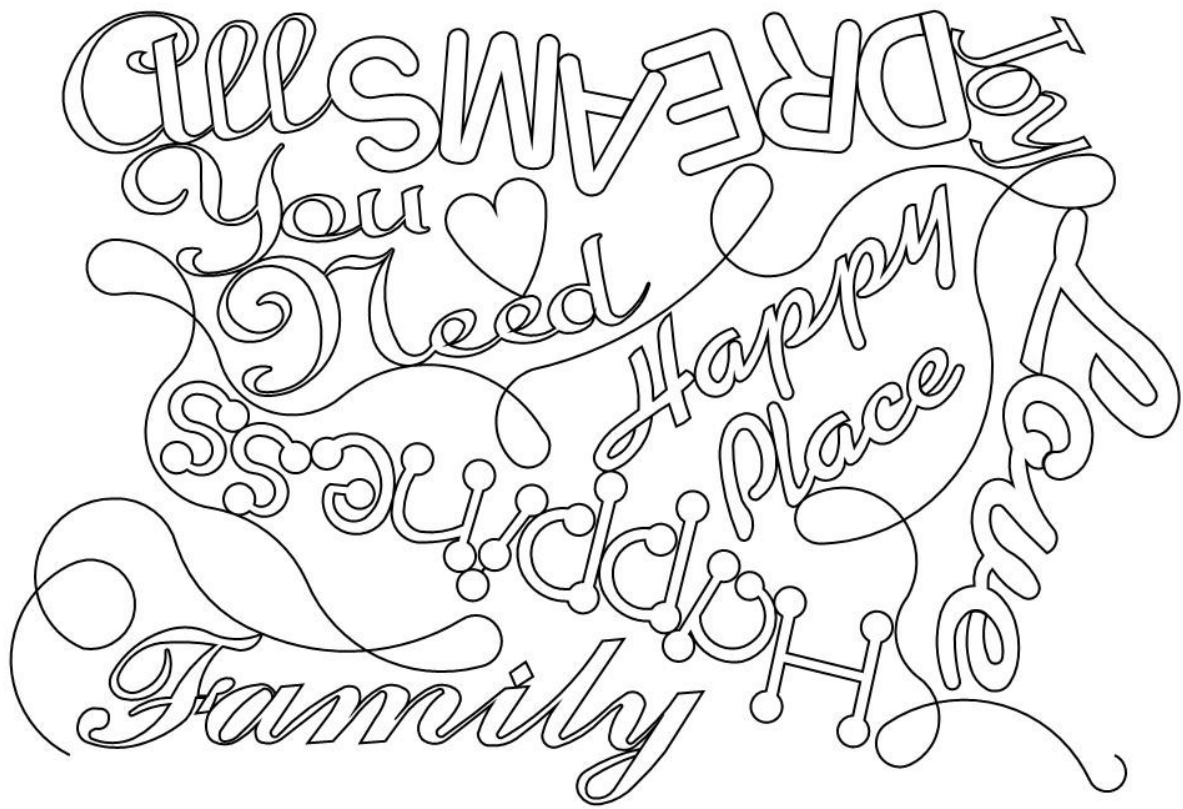 All
DREAMS
Joy
You
Need
Happy
Place
Love
Happiness
Family